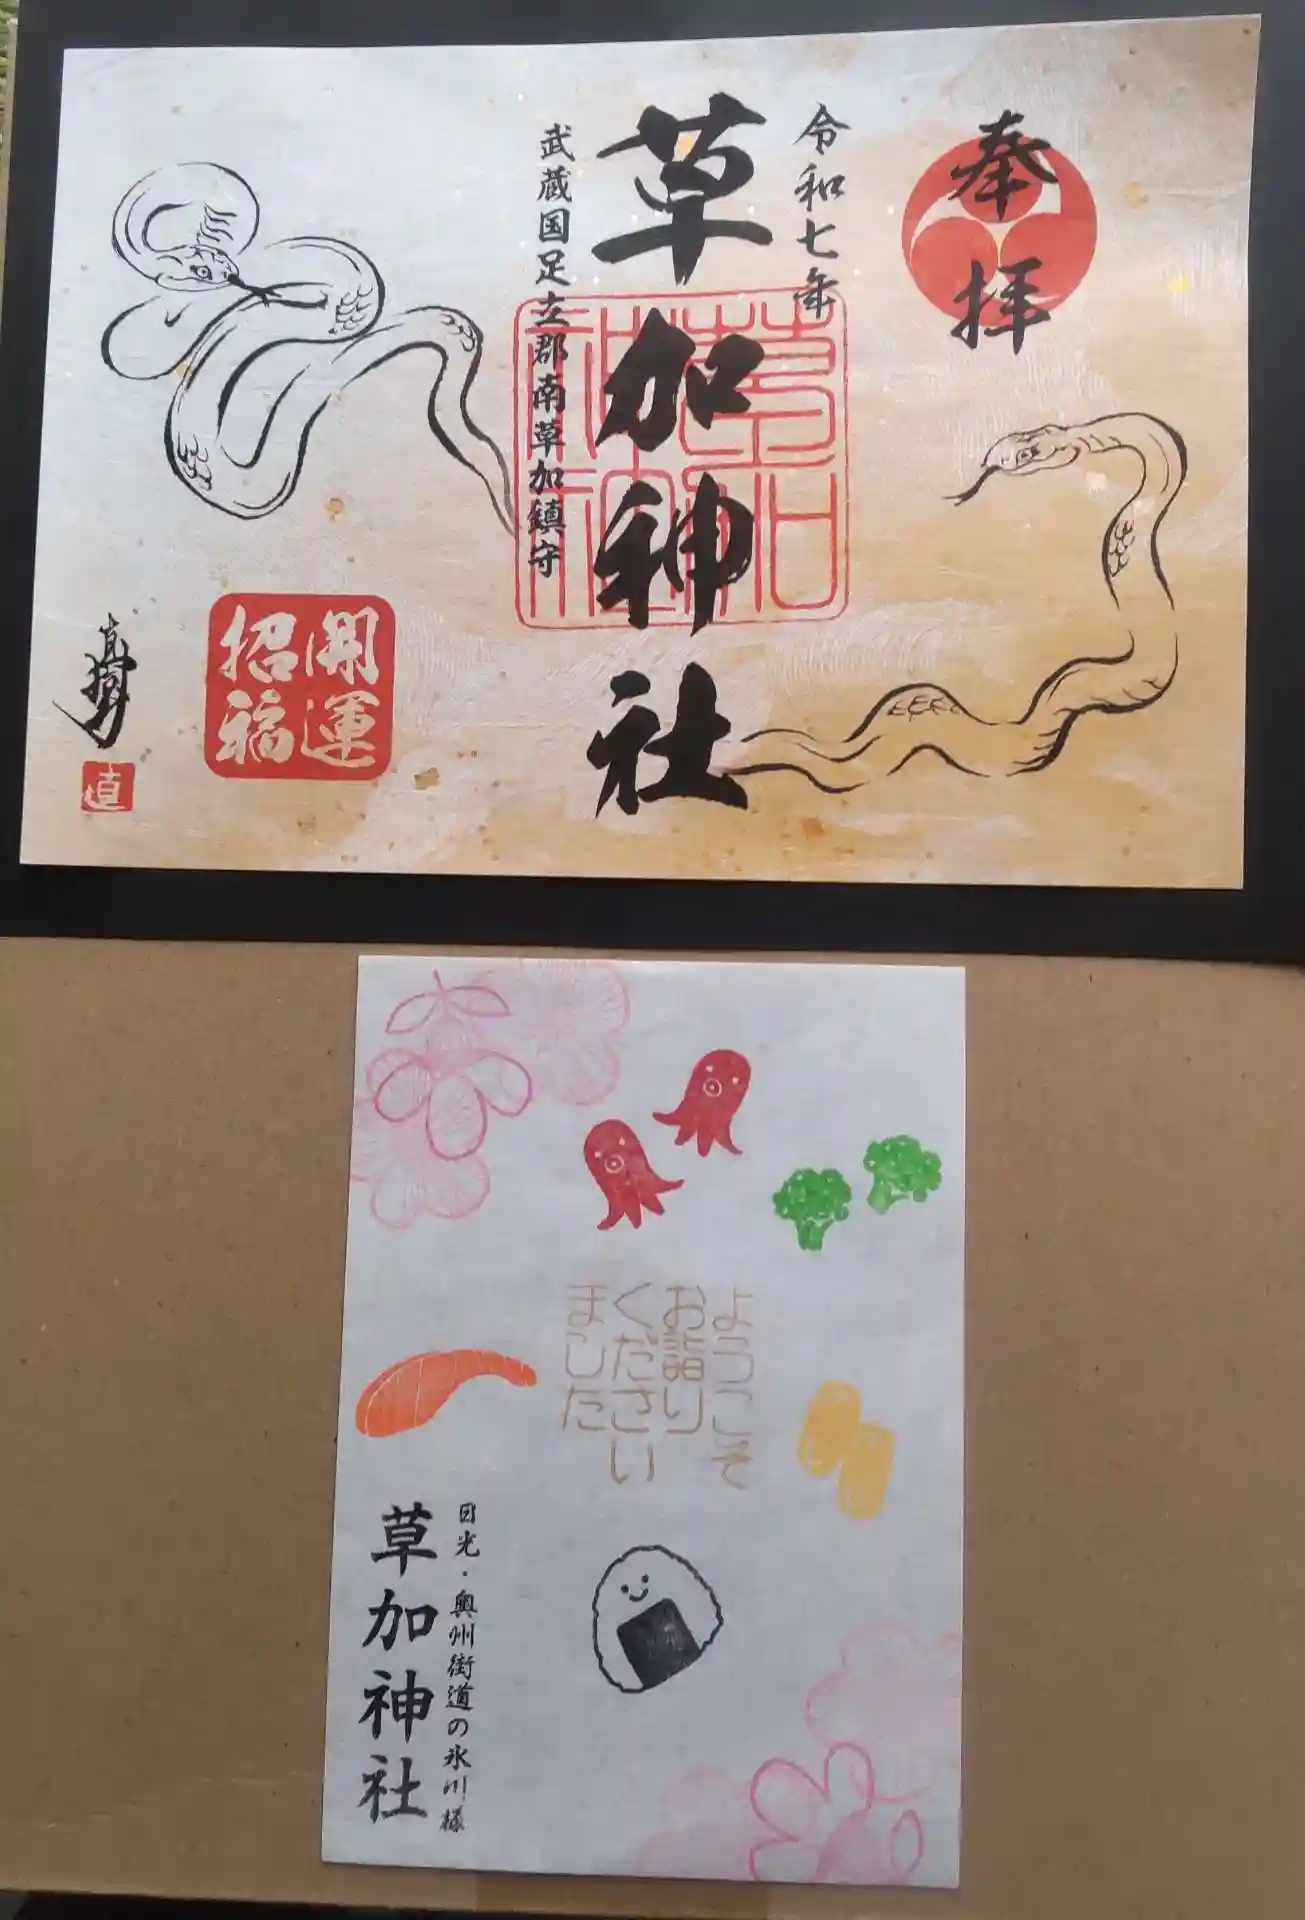 奉拝
令和七年
草加神社
武蔵国足立郡南草加鎮守
草加神社
開運
招福
直
ようこそ
お詣り
ください
ました
日光・奥州街道の氷川様
草加神社